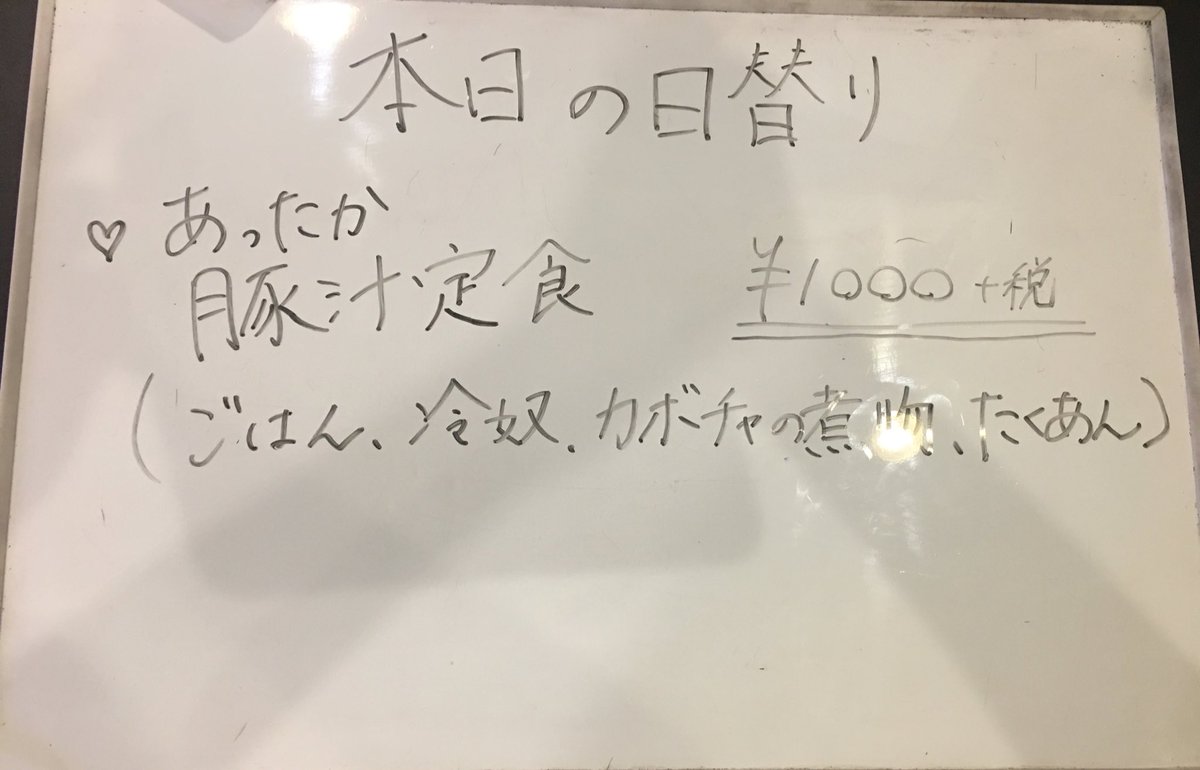 本日の日替り
♡ あったか
豚汁定食 ¥1000+税
(ごはん、冷奴、カボチャの煮物、たくあん)